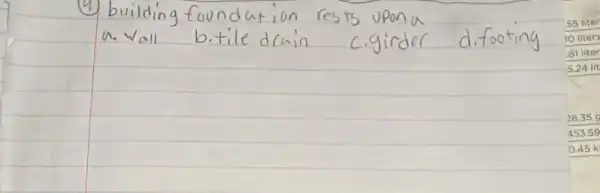 ④ building foundation rests upon a
a. wall b. tile drain c. girder d. footing
.55 liter
10 liters
.81 liter
5.24 lit
28.35 g
453.59
0.45 k